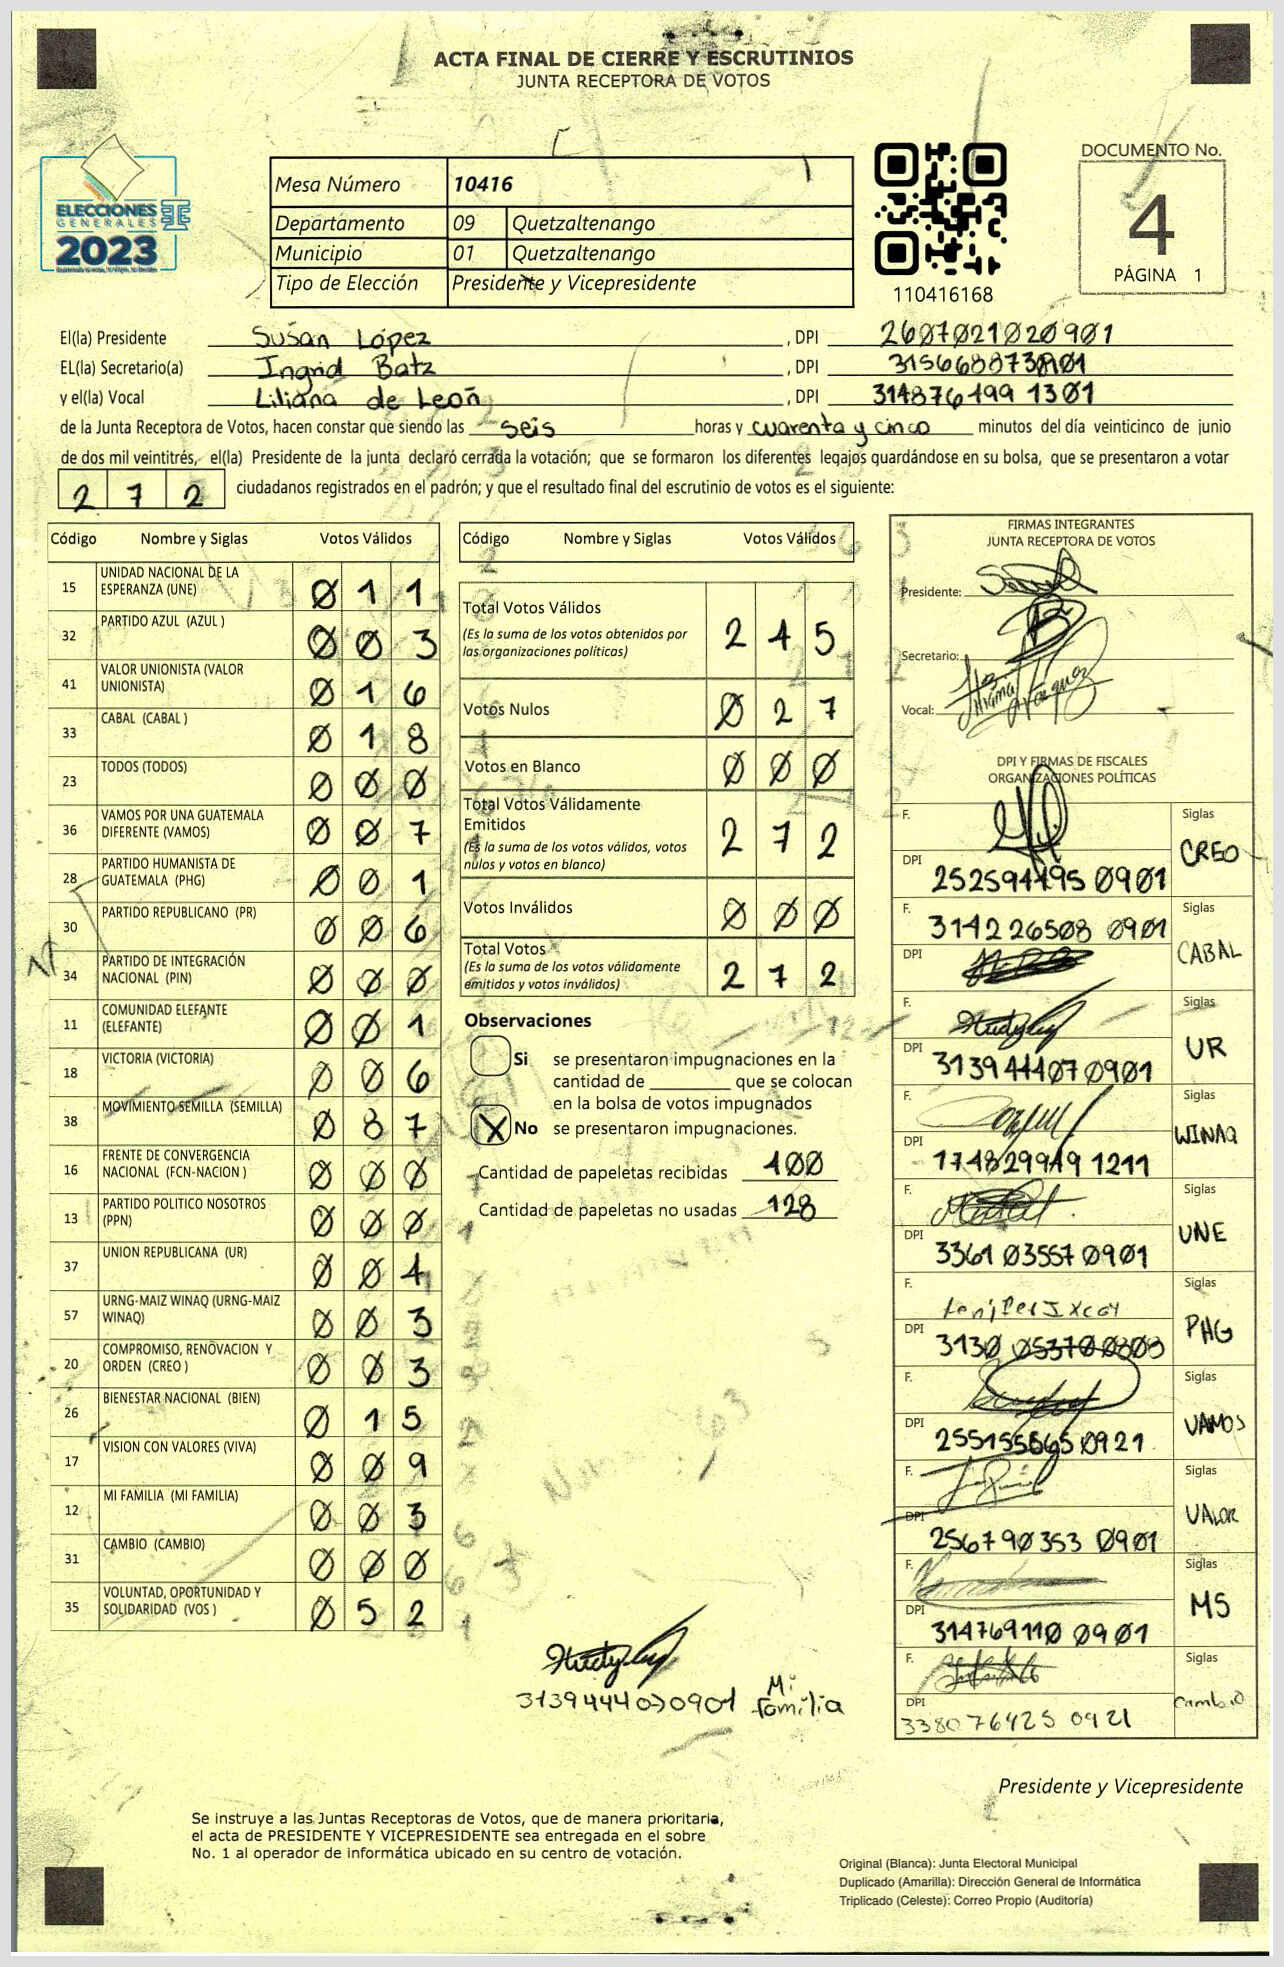 ACTA FINAL DE CIERRE Y ESCRUTINIOS
JUNTA RECEPTORA DE VOTOS
ELECCIONES
GENERALES
2023
Mesa Número 10416
Departamento 09 Quetzaltenango
Municipio 01 Quetzaltenango
Tipo de Elección Presidente y Vicepresidente
110416168
DOCUMENTO No.
4
PÁGINA 1
El(la) Presidente Susan López, DPI 2607021020901
EL(la) Secretario(a) Ingrid Batz, DPI
y el(la) Vocal Liliana de León, DPI 314876499 1301
de la Junta Receptora de Votos, hacen constar que siendo las seis horas y cuarenta y cinco minutos del día veinticinco de junio
de dos mil veintitrés, el(la) Presidente de la junta declaró cerrada la votación; que se formaron los diferentes legajos guardándose en su bolsa, que se presentaron a votar
272 ciudadanos registrados en el padrón; y que el resultado final del escrutinio de votos es el siguiente:
Código Nombre y Siglas Votos Válidos
15 UNIDAD NACIONAL DE LA ESPERANZA (UNE) 011
32 PARTIDO AZUL (AZUL ) 003
41 VALOR UNIONISTA (VALOR UNIONISTA) 016
33 CABAL (CABAL ) 018
23 TODOS (TODOS) 000
36 VAMOS POR UNA GUATEMALA DIFERENTE (VAMOS) 007
28 PARTIDO HUMANISTA DE GUATEMALA (PHG) 001
30 PARTIDO REPUBLICANO (PR) 006
34 PARTIDO DE INTEGRACIÓN NACIONAL (PIN) 000
11 COMUNIDAD ELEFANTE (ELEFANTE) 001
18 VICTORIA (VICTORIA) 006
38 MOVIMIENTO SEMILLA (SEMILLA) 087
16 FRENTE DE CONVERGENCIA NACIONAL (FCN-NACION ) 000
13 PARTIDO POLITICO NOSOTROS (PPN) 000
37 UNION REPUBLICANA (UR) 004
57 URNG-MAIZ WINAQ (URNG-MAIZ WINAQ) 003
20 COMPROMISO, RENOVACION Y ORDEN (CREO ) 003
26 BIENESTAR NACIONAL (BIEN) 015
17 VISION CON VALORES (VIVA) 009
12 MI FAMILIA (MI FAMILIA) 003
31 CAMBIO (CAMBIO) 000
35 VOLUNTAD, OPORTUNIDAD Y SOLIDARIDAD (VOS ) 052
Código Nombre y Siglas Votos Válidos
Total Votos Válidos 245
(Es la suma de los votos obtenidos por
las organizaciones políticas)
Votos Nulos 027
Votos en Blanco 000
Total Votos Válidamente
Emitidos 272
(Es la suma de los votos válidos, votos
nulos y votos en blanco)
Votos Inválidos 000
Total Votos 272
(Es la suma de los votos válidamente
emitidos y votos inválidos)
Observaciones
Si se presentaron impugnaciones en la
cantidad de ________ que se colocan
en la bolsa de votos impugnados
X No se presentaron impugnaciones.
Cantidad de papeletas recibidas 400
Cantidad de papeletas no usadas 128
3139444070901 Mi
familia
FIRMAS INTEGRANTES
JUNTA RECEPTORA DE VOTOS
Presidente:
Secretario:
Vocal:
DPI Y FIRMAS DE FISCALES
ORGANIZACIONES POLÍTICAS
F. Siglas
DPI 252594495 0901 CREO
F. 314226508 0901 Siglas
DPI CABAL
F. Siglas
DPI 313944407 0901 UR
F. Siglas
DPI 174829949 1211 WINAQ
F. Siglas
DPI 336103557 0901 UNE
F. Jenifer Ixcoy Siglas
DPI 3130 05370 0808 PHG
F. Siglas
DPI 255155565 0921 VAMOS
F. Siglas
DPI 256790353 0901 VALOR
F. Siglas
DPI 314769110 0901 MS
F. Siglas
DPI 338076425 0921 Cambio
Presidente y Vicepresidente
Se instruye a las Juntas Receptoras de Votos, que de manera prioritaria,
el acta de PRESIDENTE Y VICEPRESIDENTE sea entregada en el sobre
No. 1 al operador de informática ubicado en su centro de votación.
Original (Blanca): Junta Electoral Municipal
Duplicado (Amarilla): Dirección General de Informática
Triplicado (Celeste): Correo Propio (Auditoría)